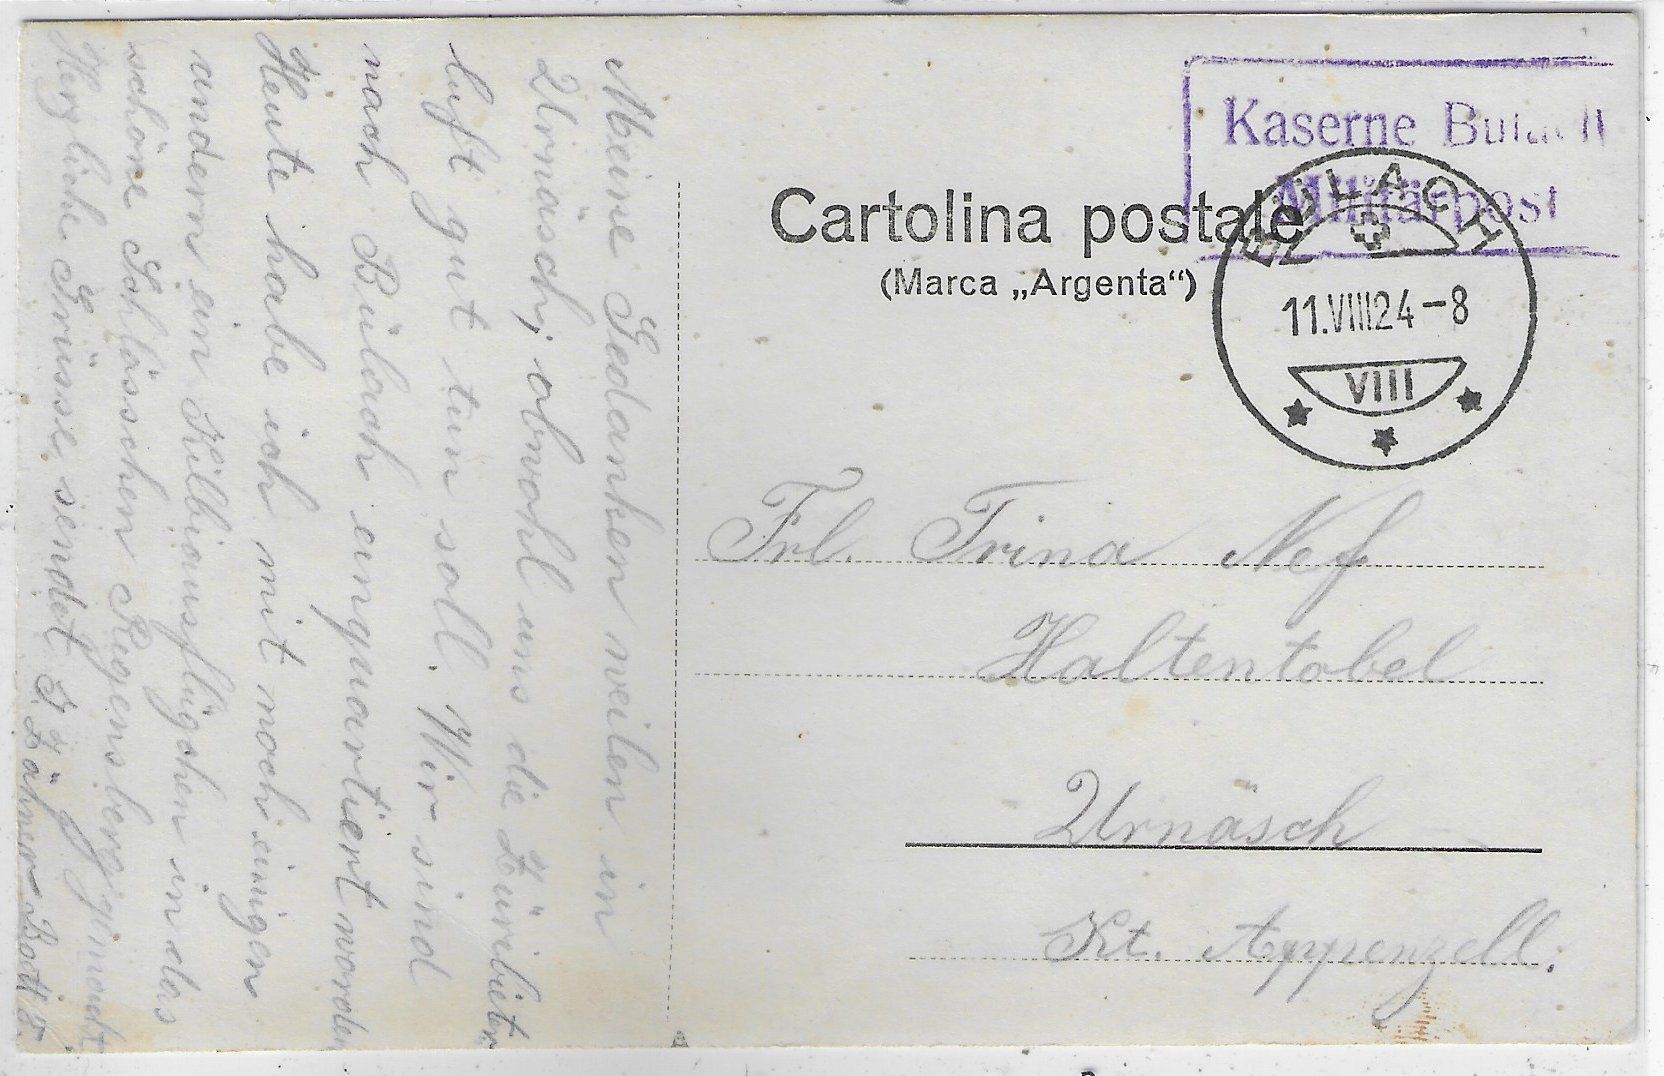 Meine Gedanken weilen in
Urnäsch, obwohl uns die Züribieter
luft gut tun soll. Wir sind
nach Bülach einquartiert worden
Heute habe ich mit noch einigen
andern ein Kilbiausflügchen in das
schöne Schlösschen Regensberg gemacht
Herzliche Grüsse sendet
Kaserne Bülach
Militärpost
Cartolina postale
(Marca „Argenta“)
BÜLACH
11.VIII24-8
VIII
Frl. Trina Nef
Haltentobel
Urnäsch
Kt. Appenzell.